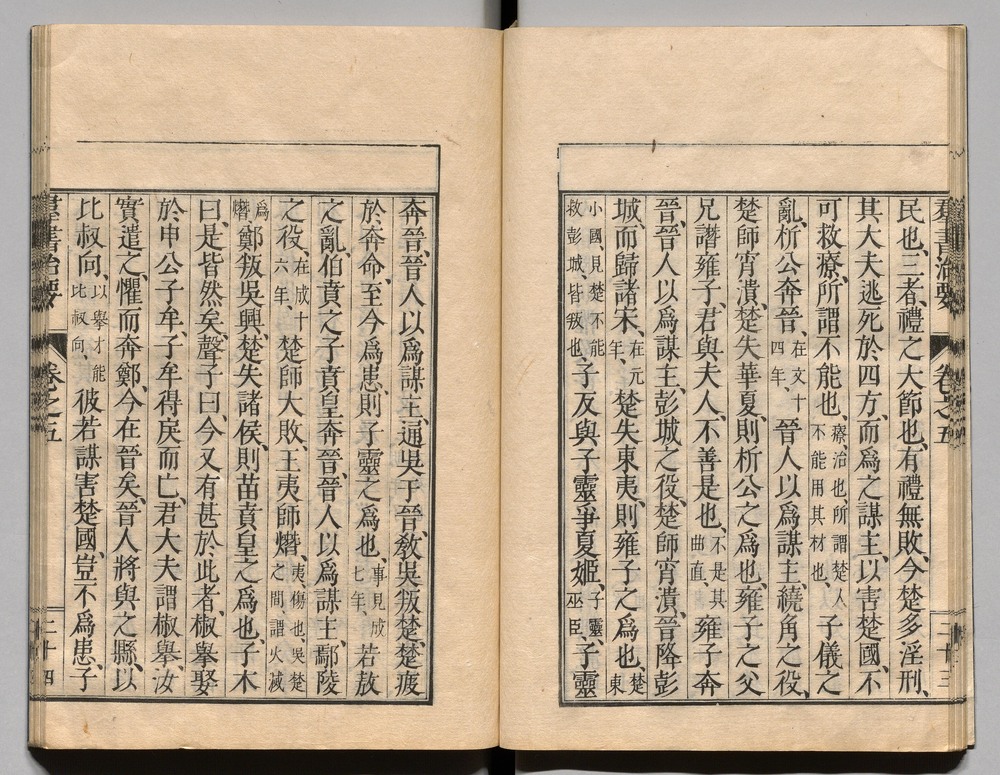 羣書治要 卷之五 二十三
民也、三者、禮之大節也、有禮無敗、今楚多淫刑、
其大夫逃死於四方、而爲之謀主、以害楚國、不
可救療、所謂不能也、療、治也、所謂楚人不能用其材也、子儀之
亂、析公奔晉、在文十四年、晉人以爲謀主、繞角之役、
楚師宵潰、楚失華夏、則析公之爲也、雍子之父
兄譖雍子、君與夫人、不善是也、不是其曲直、雍子奔
晉、晉人以爲謀主、彭城之役、楚師宵潰、晉降彭
城、而歸諸宋、在元年、楚失東夷、則雍子之爲也、楚東
小國、見楚不能救彭城、皆叛也、子反與子靈爭夏姬、子靈巫臣、子靈
奔晉、晉人以爲謀主、通吳于晉、敎吳叛楚、楚疲
於奔命、至今爲患、則子靈之爲也、事見成七年、若敖
之亂、伯賁之子賁皇奔晉、晉人以爲謀主、鄢陵
之役、在成十六年、楚師大敗、王夷師熸、夷、傷也、吳楚之間、謂火滅
爲熸、鄭叛吳興、楚失諸侯、則苗賁皇之爲也、子木
曰、是皆然矣、聲子曰、今又有甚於此者、椒擧娶
於申公子牟、子牟得戾而亡、君大夫謂椒擧、汝
實遣之、懼而奔鄭、今在晉矣、晉人將與之縣、以
比叔向、以擧才能比叔向、彼若謀害楚國、豈不爲患、子
羣書治要 卷之五 二十四